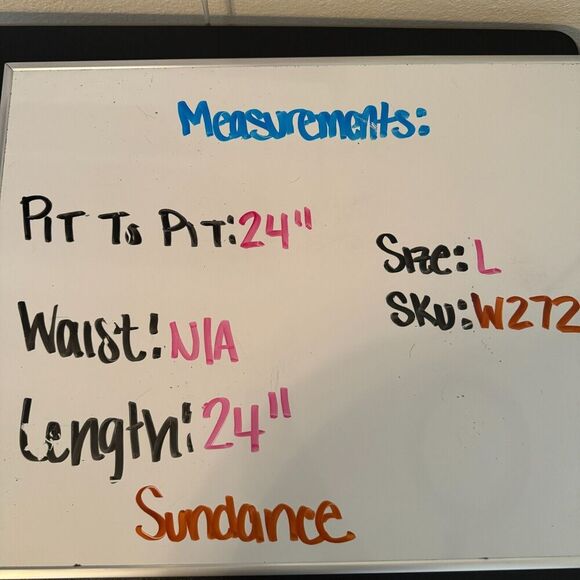 Measurements:
PIT To PIT: 24"
Size: L
SKU: W272
Waist: N/A
Length: 24"
Sundance